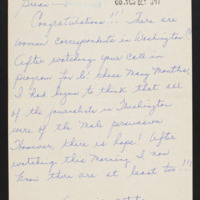 Dear
Congratulations!!! There are
woman correspondents in Washington!
After watching your call in
program for lo! these many months,
I had begun to think that all
of the journalists in Washington
were of the male persuasion
However, there is hope! After
watching this morning I now
know there are at least two!!!